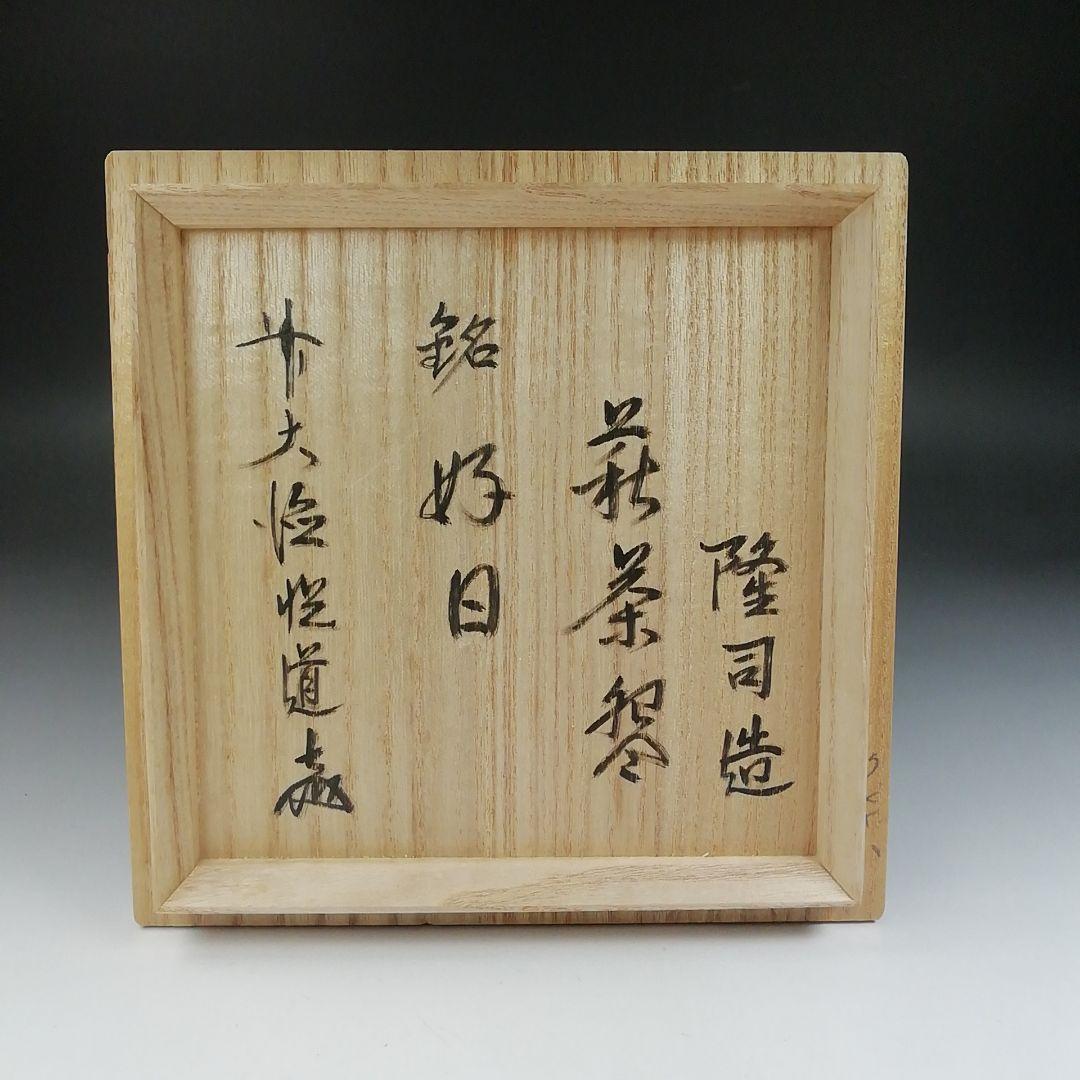 隆司造
萩茶盌
銘 好日
前大徳悦道